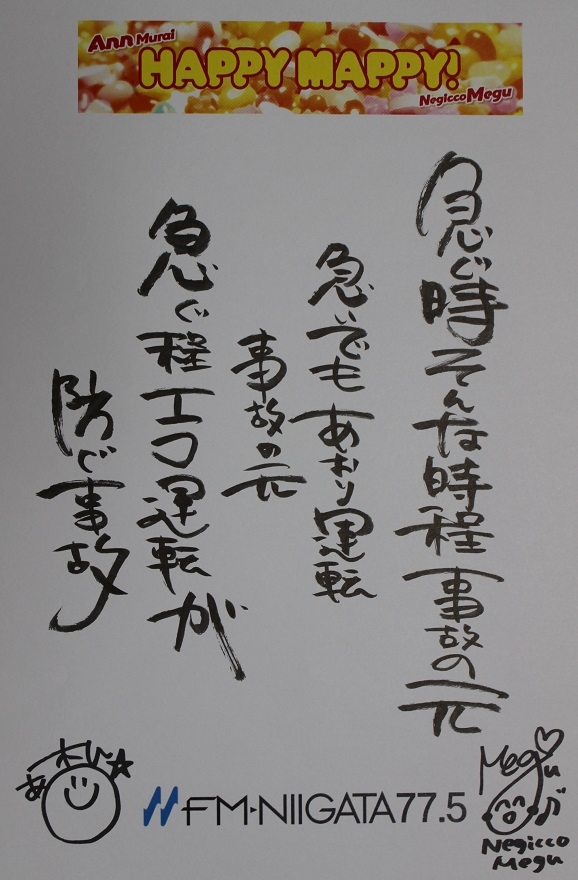 Ann Murai
HAPPY MAPPY!
Negicco Megu
急ぐ時そんな時程事故の元
急いでもあおり運転
事故の元
急ぐ程エコ運転が
防ぐ事故
FM-NIIGATA 77.5
Megu
Negicco
Megu